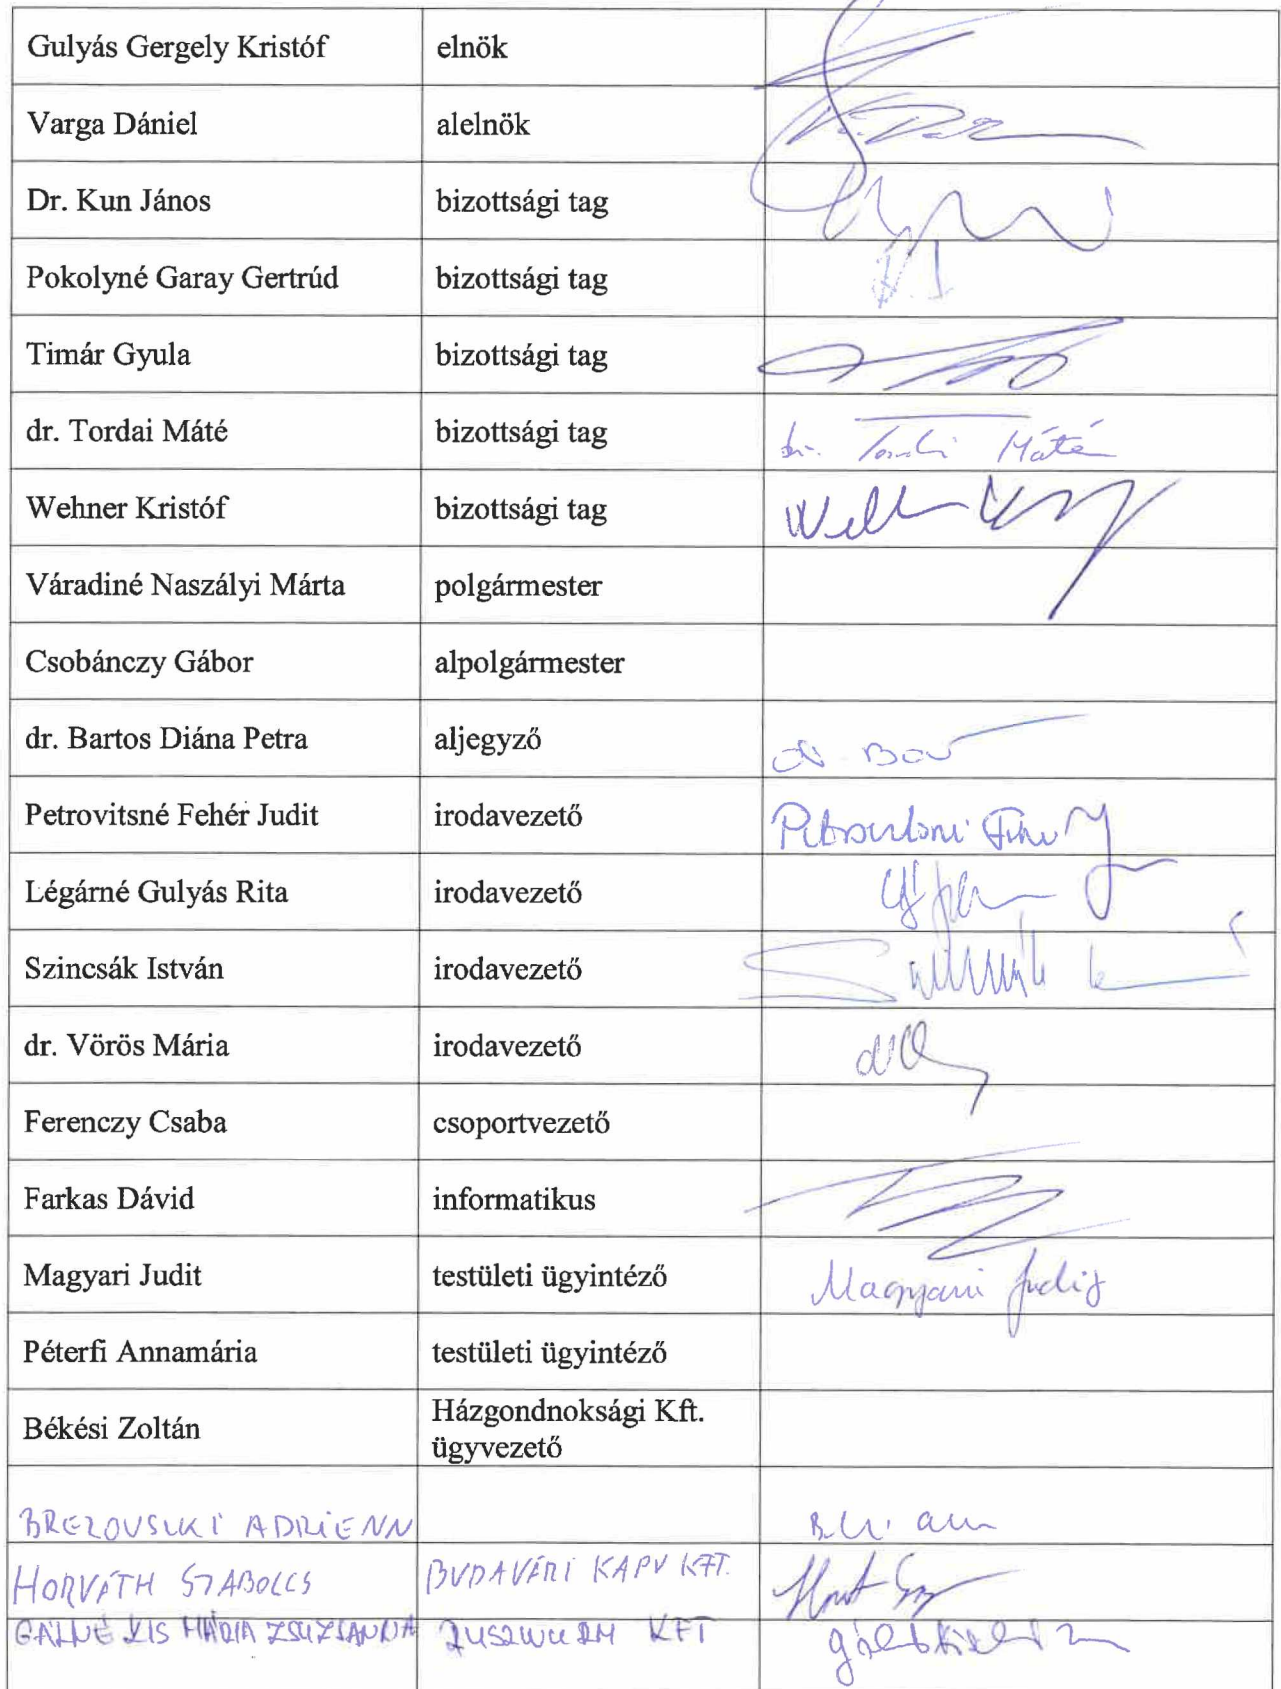 Gulyás Gergely Kristóf elnök
Varga Dániel alelnök
Dr. Kun János bizottsági tag
Pokolyné Garay Gertrúd bizottsági tag
Timár Gyula bizottsági tag
dr. Tordai Máté bizottsági tag dr. Tordai Máté
Wehner Kristóf bizottsági tag
Váradiné Naszályi Márta polgármester
Csobánczy Gábor alpolgármester
dr. Bartos Diána Petra aljegyző
Petrovitsné Fehér Judit irodavezető
Légárné Gulyás Rita irodavezető
Szincsák István irodavezető
dr. Vörös Mária irodavezető
Ferenczy Csaba csoportvezető
Farkas Dávid informatikus
Magyari Judit testületi ügyintéző Magyari Judit
Péterfi Annamária testületi ügyintéző
Békési Zoltán Házgondnoksági Kft.
ügyvezető
BREZOVSZKI ADRIENN
HORVÁTH SZABOLCS BUDAVÁRI KAPU KFT.
GÁLNÉ KIS MÁRIA ZSUZSANNA RUSZWURM KFT